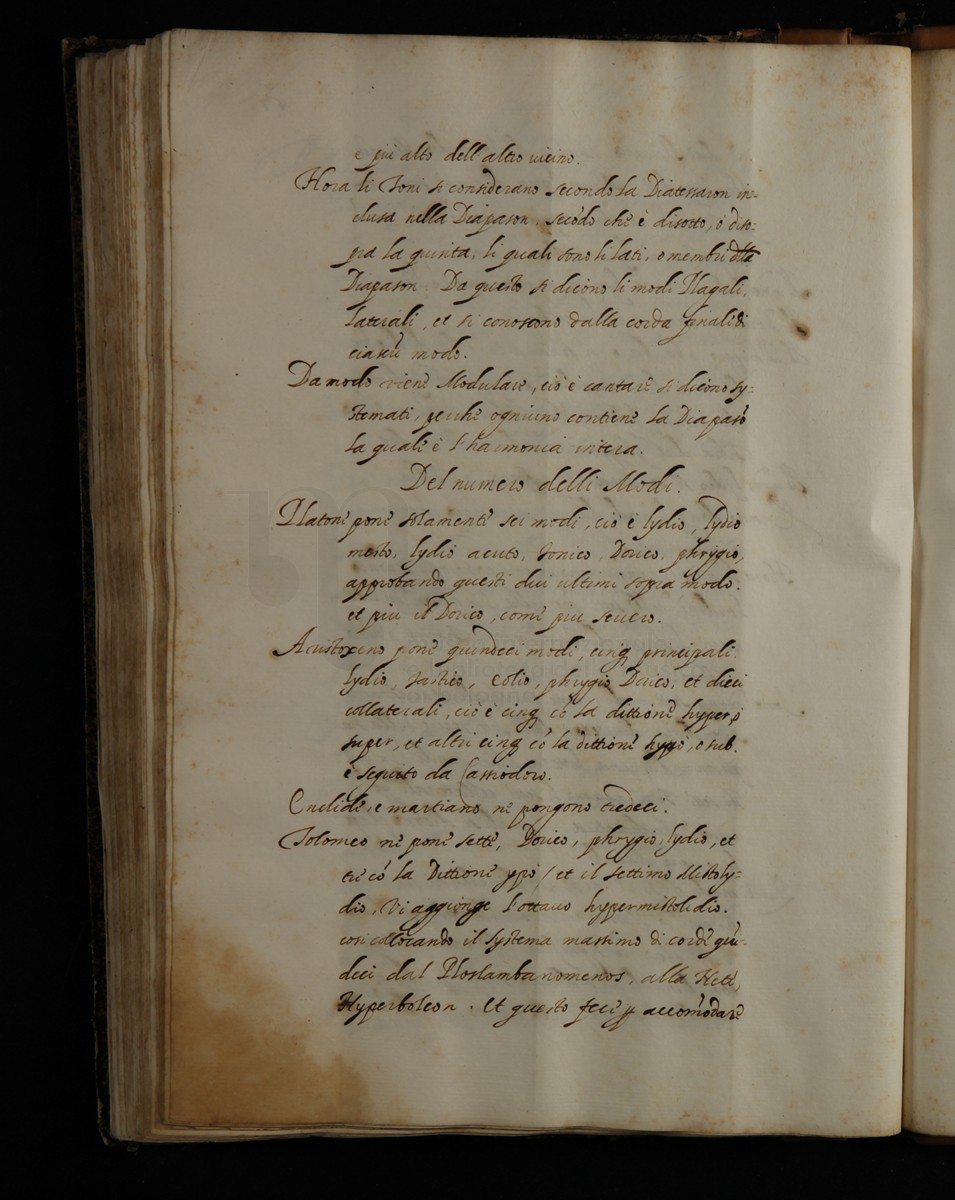 è piu alto dell'altro uicino.
Hora li Toni si considerano secondo la Diatessaron in-
clusa nella Diapason, secõdo che è disotto, ò diso-
pra la quinta, li quali sono li lati, o membri della
Diapason. Da questo si dicono li modi Plagali,
laterali, et si conoscono dalla corda finale di
ciascũ modo.
Da modo viene Modulare, cio è cantare si dicono sy-
stemati, perche ogniuno contiene la Diapasõ
la quale è l'harmonia intera.
Del numero delli Modi.
Platone pone solamente sei modi, cio è lydio, lydio
mesto, lydio acuto, Ionico, Dorico, phrygio,
approbando questi dui ultimi sopra modo.
et piu il Dorico, come piu seuero.
Aristoxeno pone quindeci modi, cinq principali.
lydio, Iastico, Eolio, phrygio, Dorico; et dieci
collaterali, cio è cinq cõ la dittione hyper, ò
super, et altri cinq cõ la dittione hypo, o sub.
è seguito da Cassiodoro.
Euclide, e martiano ne pongono tredeci.
Tolomeo ne pone sette, Dorico, phrygio, lydio, et
tre cõ la Dittione ypo / et il settimo Mistoly-
dio, Vi aggionge l'ottauo hypermistolidio.
cosi collocando il systema massimo di corde quĩ-
deci dal Proslambanomenos, alla Nete,
Hyperboleon. Et questo fece p accõmodare